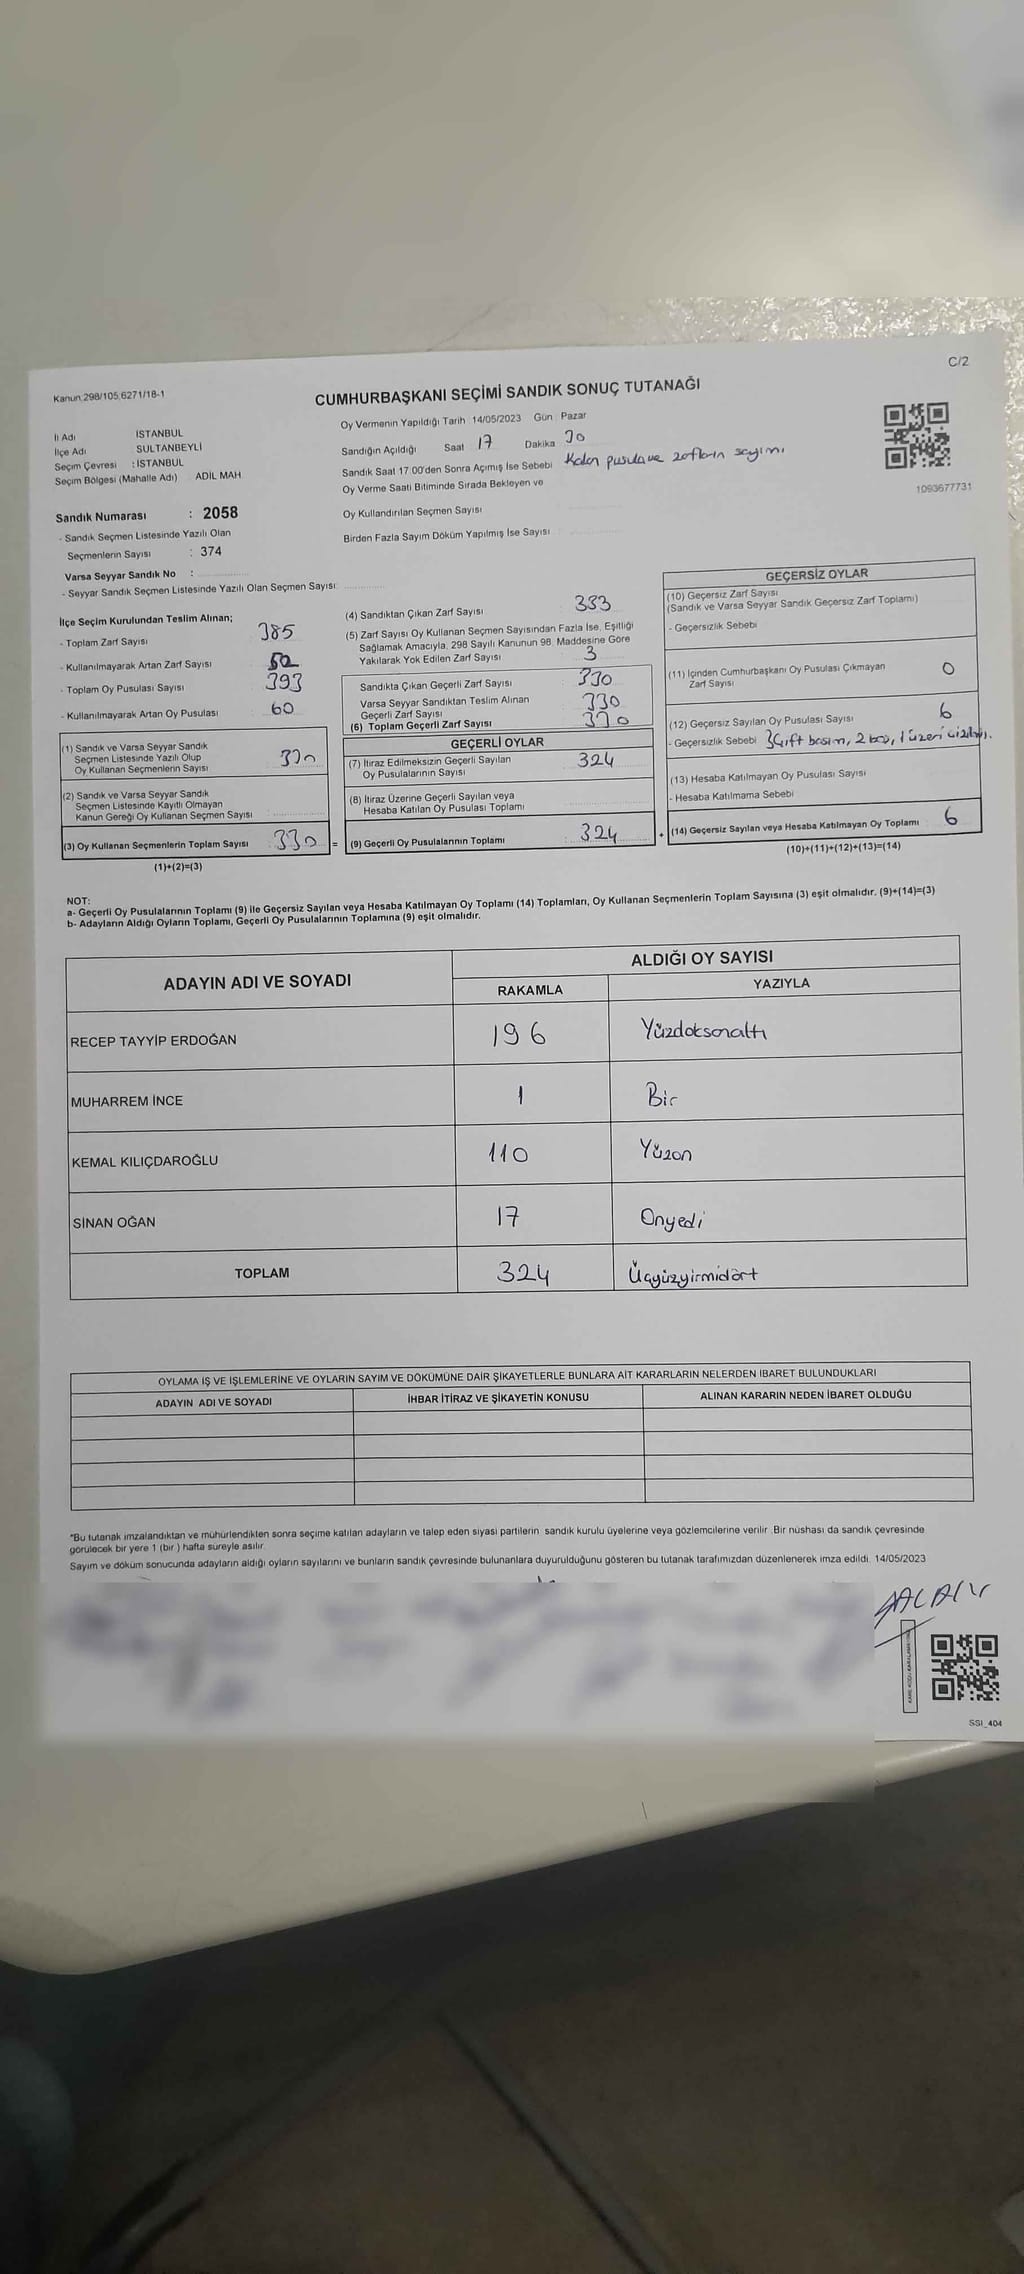 C/2
Kanun,298/105,6271/18-1
CUMHURBAŞKANI SEÇİMİ SANDIK SONUÇ TUTANAĞI
İl Adı İSTANBUL
İlçe Adı SULTANBEYLİ
Seçim Çevresi : İSTANBUL
Seçim Bölgesi (Mahalle Adı) ADİL MAH
Sandık Numarası : 2058
- Sandık Seçmen Listesinde Yazılı Olan
Seçmenlerin Sayısı : 374
Varsa Seyyar Sandık No :
- Seyyar Sandık Seçmen Listesinde Yazılı Olan Seçmen Sayısı:
Oy Vermenin Yapıldığı Tarih 14/05/2023 Gün Pazar
Sandığın Açıldığı Saat 17 Dakika 30
Sandık Saat 17.00'den Sonra Açımış İse Sebebi Kalan pusula ve zarfların sayımı
Oy Verme Saati Bitiminde Sırada Bekleyen ve
Oy Kullandırılan Seçmen Sayısı
Birden Fazla Sayım Döküm Yapılmış İse Sayısı
1093677731
İlçe Seçim Kurulundan Teslim Alınan;
- Toplam Zarf Sayısı 385
- Kullanılmayarak Artan Zarf Sayısı 52
- Toplam Oy Pusulası Sayısı 393
- Kullanılmayarak Artan Oy Pusulası 60
(1) Sandık ve Varsa Seyyar Sandık
Seçmen Listesinde Yazılı Olup
Oy Kullanan Seçmenlerin Sayısı 330
(2) Sandık ve Varsa Seyyar Sandık
Seçmen Listesinde Kayıtlı Olmayan
Kanun Gereği Oy Kullanan Seçmen Sayısı
(3) Oy Kullanan Seçmenlerin Toplam Sayısı 330 =
(1)+(2)=(3)
(4) Sandıktan Çıkan Zarf Sayısı 333
(5) Zarf Sayısı Oy Kullanan Seçmen Sayısından Fazla İse, Eşitliği
Sağlamak Amacıyla, 298 Sayılı Kanunun 98. Maddesine Göre
Yakılarak Yok Edilen Zarf Sayısı 3
Sandıkta Çıkan Geçerli Zarf Sayısı 330
Varsa Seyyar Sandıktan Teslim Alınan
Geçerli Zarf Sayısı 330
(6) Toplam Geçerli Zarf Sayısı 330
GEÇERLİ OYLAR
(7) İtiraz Edilmeksizin Geçerli Sayılan
Oy Pusulalarının Sayısı 324
(8) İtiraz Üzerine Geçerli Sayılan veya
Hesaba Katılan Oy Pusulası Toplamı
(9) Geçerli Oy Pusulalarının Toplamı : 324 +
GEÇERSİZ OYLAR
(10) Geçersiz Zarf Sayısı
(Sandık ve Varsa Seyyar Sandık Geçersiz Zarf Toplamı)
- Geçersizlik Sebebi
(11) İçinden Cumhurbaşkanı Oy Pusulası Çıkmayan
Zarf Sayısı 0
(12) Geçersiz Sayılan Oy Pusulası Sayısı 6
- Geçersizlik Sebebi 3 Çift basım, 2 boş, 1 üzeri çizilmiş.
(13) Hesaba Katılmayan Oy Pusulası Sayısı
- Hesaba Katılmama Sebebi
(14) Geçersiz Sayılan veya Hesaba Katılmayan Oy Toplamı 6
(10)+(11)+(12)+(13)=(14)
NOT:
a- Geçerli Oy Pusulalarının Toplamı (9) ile Geçersiz Sayılan veya Hesaba Katılmayan Oy Toplamı (14) Toplamları, Oy Kullanan Seçmenlerin Toplam Sayısına (3) eşit olmalıdır. (9)+(14)=(3)
b- Adayların Aldığı Oyların Toplamı, Geçerli Oy Pusulalarının Toplamına (9) eşit olmalıdır.
ADAYIN ADI VE SOYADI ALDIĞI OY SAYISI
RAKAMLA YAZIYLA
RECEP TAYYİP ERDOĞAN 196 Yüzdoksanaltı
MUHARREM İNCE 1 Bir
KEMAL KILIÇDAROĞLU 110 Yüzon
SİNAN OĞAN 17 Onyedi
TOPLAM 324 Üçyüzyirmidört
OYLAMA İŞ VE İŞLEMLERİNE VE OYLARIN SAYIM VE DÖKÜMÜNE DAİR ŞİKAYETLERLE BUNLARA AİT KARARLARIN NELERDEN İBARET BULUNDUKLARI
ADAYIN ADI VE SOYADI İHBAR İTİRAZ VE ŞİKAYETİN KONUSU ALINAN KARARIN NEDEN İBARET OLDUĞU
*Bu tutanak imzalandıktan ve mühürlendikten sonra seçime katılan adayların ve talep eden siyasi partilerin sandık kurulu üyelerine veya gözlemcilerine verilir. Bir nüshası da sandık çevresinde
görülecek bir yere 1 (bir ) hafta süreyle asılır.
Sayım ve döküm sonucunda adayların aldığı oyların sayılarını ve bunların sandık çevresinde bulunanlara duyurulduğunu gösteren bu tutanak tarafımızdan düzenlenerek imza edildi. 14/05/2023
SSI_404